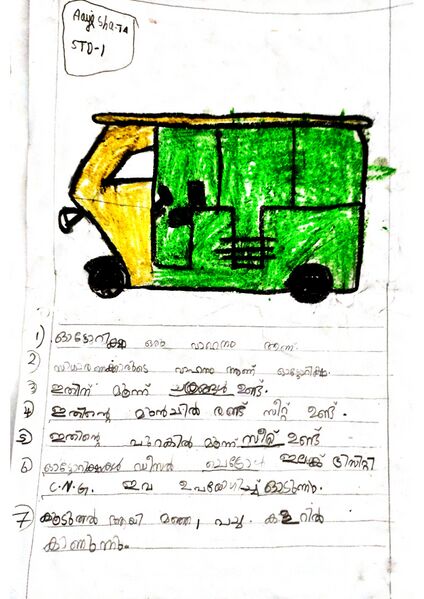 Aayisha.TA
STD-1
1) ഓട്ടോറിക്ഷ ഒരു വാഹനം ആണ്.
2) സാധാരണക്കാരുടെ വാഹനം ആണ് ഓട്ടോറിക്ഷ.
3 ഇതിന് മൂന്ന് ചക്രങ്ങൾ ഉണ്ട്.
4 ഇതിന്റെ മുൻപിൽ രണ്ട് സീറ്റ് ഉണ്ട്.
5 ഇതിന്റെ പുറകിൽ മൂന്ന് സീറ്റ് ഉണ്ട്
6 ഓട്ടോറിക്ഷകൾ ഡീസൽ പെട്രോൾ ഇലക്ട്രിസിറ്റി
C.N.G. ഇവ ഉപയോഗിച്ച് ഓടുന്നു.
7 കൂടുതൽ ആയി മഞ്ഞ, പച്ച കളറിൽ
കാണുന്നു.